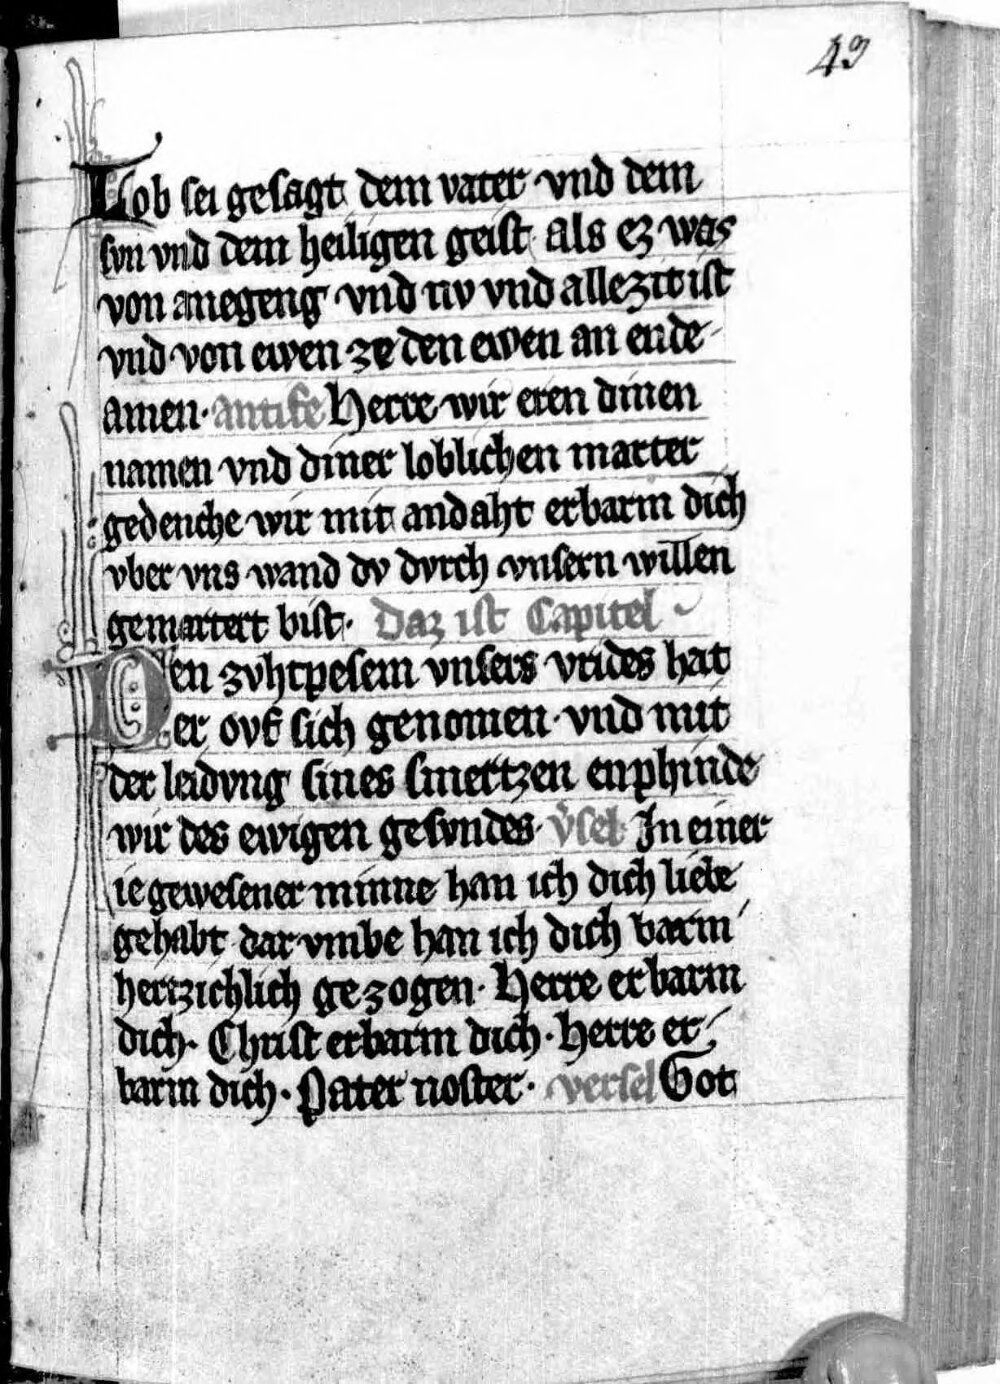 49
Lob sei gesagt dem vater vnd dem
svn vnd dem heiligen geist als ez was
von anegeng vnd nv vnd allezit ist
vnd von ewen ze den ewen an ende
amen · antife Herre wir eren dinen
namen vnd diner loblichen marter
gedenche wir mit andaht erbarm dich
vber vns wand dv dvrch vnsern willen
gemartert bist · Daz ist Capitel
Den zvhtpesem vnsers vrides hat
er ovf sich genomen · vnd mit
der leidvng sines smertzen enphinde
wir des ewigen gesvndes · v̾sel In einer
ie gewesener minne han ich dich liebe
gehabt dar vmbe han ich dich barm
hertzichlich gezogen · Herre erbarm
dich · Christ erbarm dich · Herre er
barm dich · Pater noster · versel Got